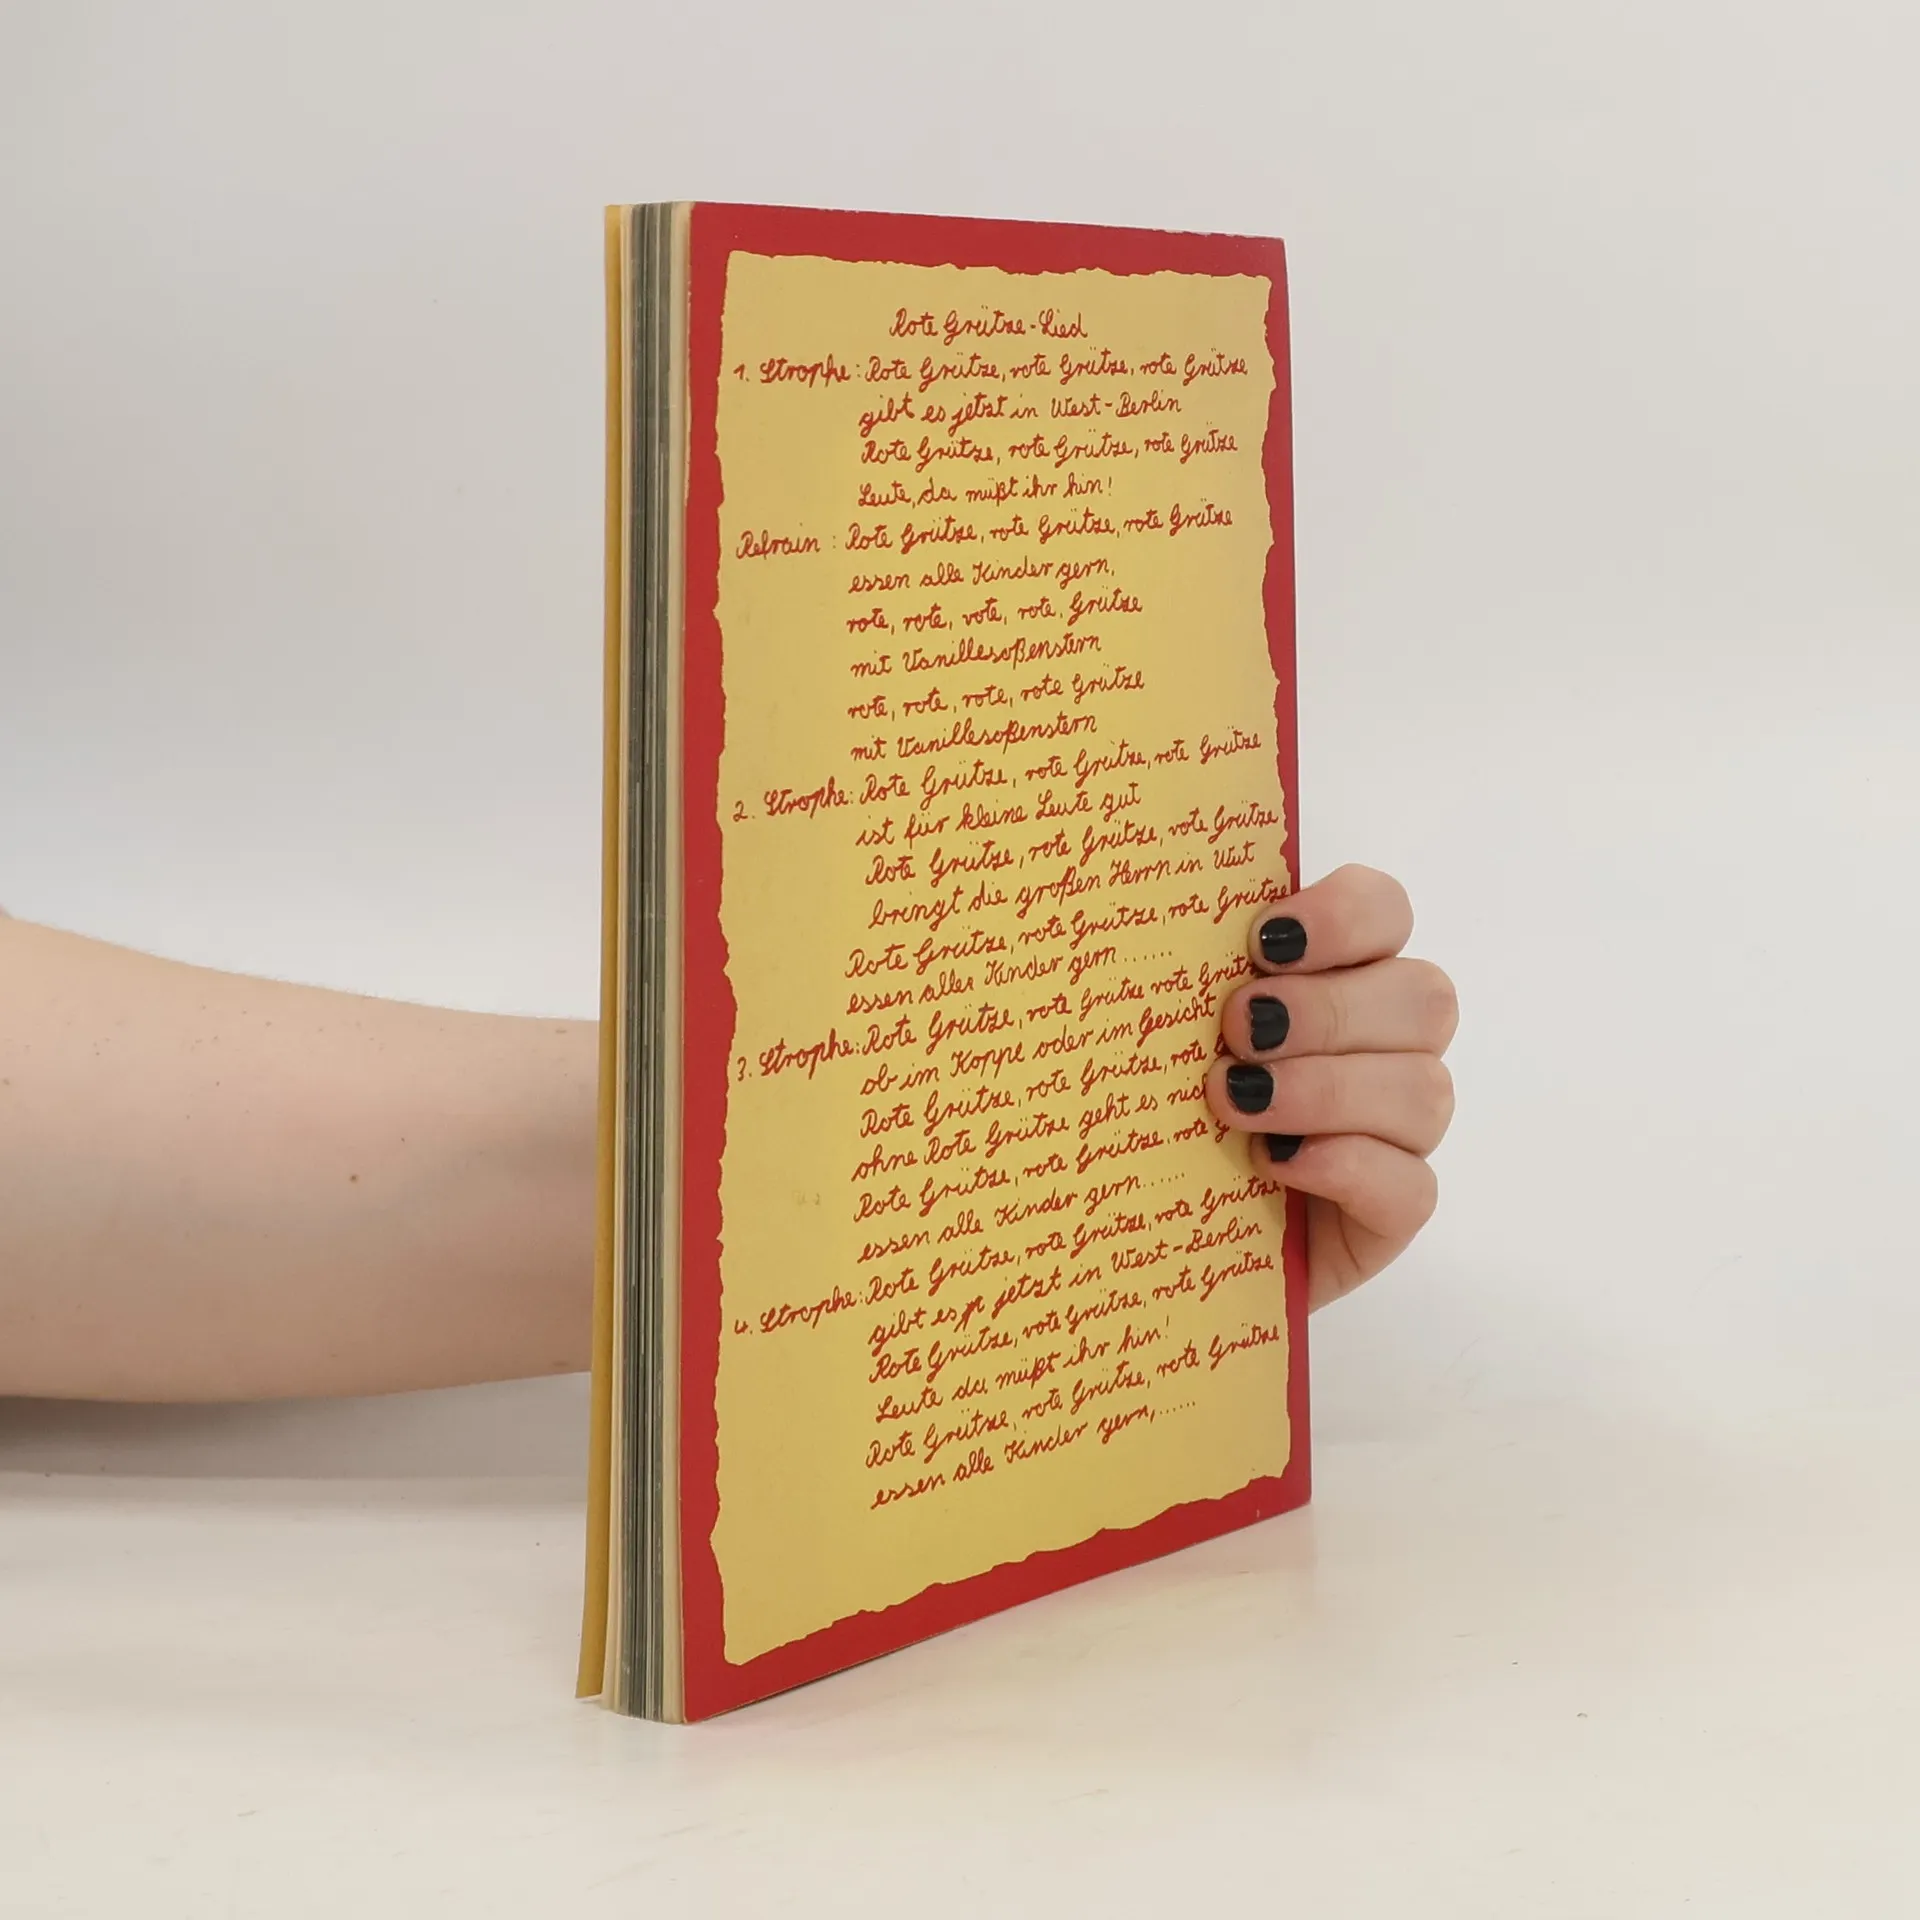 Rote Grütze-Lied
1. Strophe: Rote Grütze, rote Grütze, rote Grütze
gibt es jetzt in West-Berlin
Rote Grütze, rote Grütze, rote Grütze
Leute, da müßt ihr hin!
Refrain: Rote Grütze, rote Grütze, rote Grütze
essen alle Kinder gern,
rote, rote, rote, rote, Grütze
mit Vanillesoßenstern
rote, rote, rote, rote Grütze
mit Vanillesoßenstern
2. Strophe: Rote Grütze, rote Grütze, rote Grütze
ist für kleine Leute gut
Rote Grütze, rote Grütze, rote Grütze
bringt die großen Herrn in Wut
Rote Grütze, rote Grütze, rote Grütze
essen alle Kinder gern......
3. Strophe: Rote Grütze, rote Grütze rote Grütz
ob im Koppe oder im Gesicht
Rote Grütze, rote Grütze, rote
ohne Rote Grütze geht es nic
Rote Grütze, rote Grütze, rote G
essen alle Kinder gern......
4. Strophe: Rote Grütze, rote Grütze, rote Grütze
gibt es jetzt in West-Berlin
Rote Grütze, rote Grütze, rote Grütze
Leute da müßt ihr hin!
Rote Grütze, rote Grütze, rote Grütze
essen alle Kinder gern,......